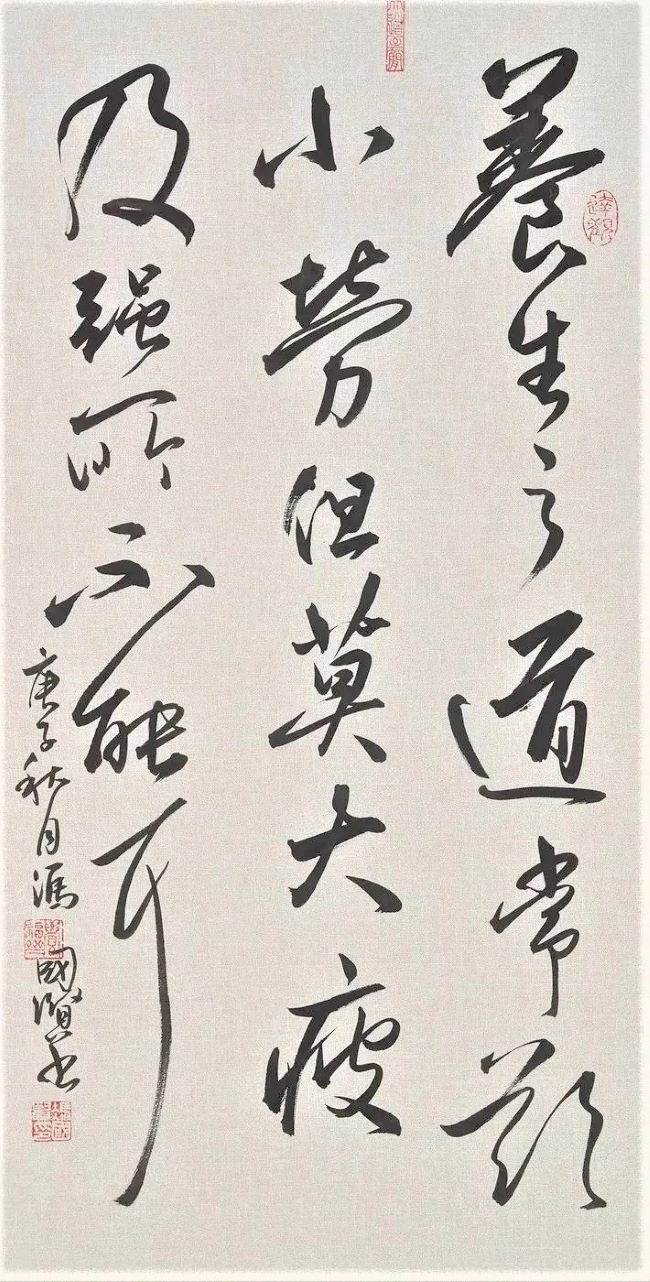 養生之道常欲
小勞但莫大疲
及强所不能耳
庚子秋月馮國賢书
達觀